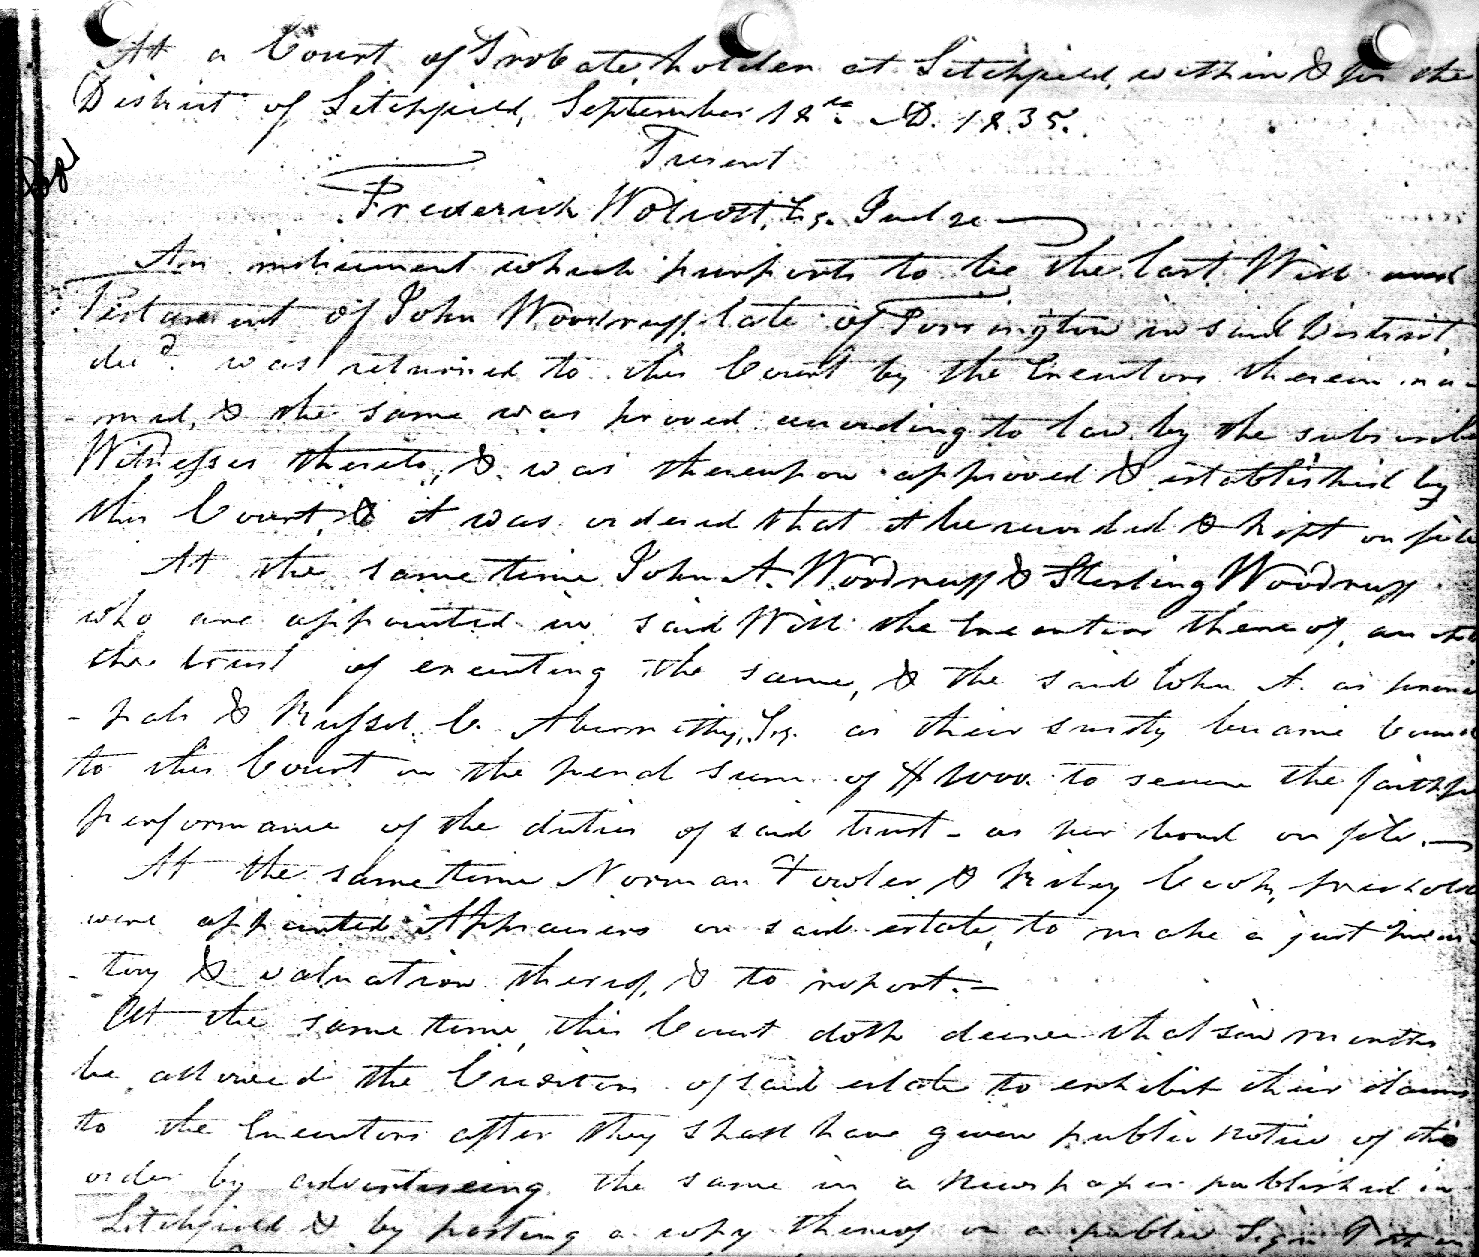 At a Court of Probate, holden at Litchfield, within & for the
District of Litchfield, September 18th. AD. 1835.
Present
Frederick Wolcott, Esq. Judge
An instrument which purports to be the last Will and
Testament of John Woodruff, late of Torrington in said District,
decd. was returned to this Court by the Executors therein na-
-med, & the same was proved according to law by the subscrib
Witnesses thereto, & was thereupon approved & established by
this Court, & it was ordered that it be recorded & kept on file
At the same time John A. Woodruff & Sterling Woodruff
who are appointed in said Will the Executors thereof,
the trust of executing the same, & the said John A. as princi
-pals & Russel C. Abernethy, Esq. as their surety became bound
to this Court in the penal sum of $1000. to secure the faithfu
performance of the duties of said trust - as per bond on file. —
At the same time Norman Fowler & Riley Cook, freehold
were appointed Appraisers on said estate, to make a just Inven
-tory & valuation thereof, & to report. —
At the same time, this Court doth decree that six months
be allowed the Creditors of said estate to exhibit their claims
to the Executors after they shall have given public notice of this
order by advertiseing the same in a Newspaper published in
Litchfield & by posting a copy thereof on a public Sign Post in